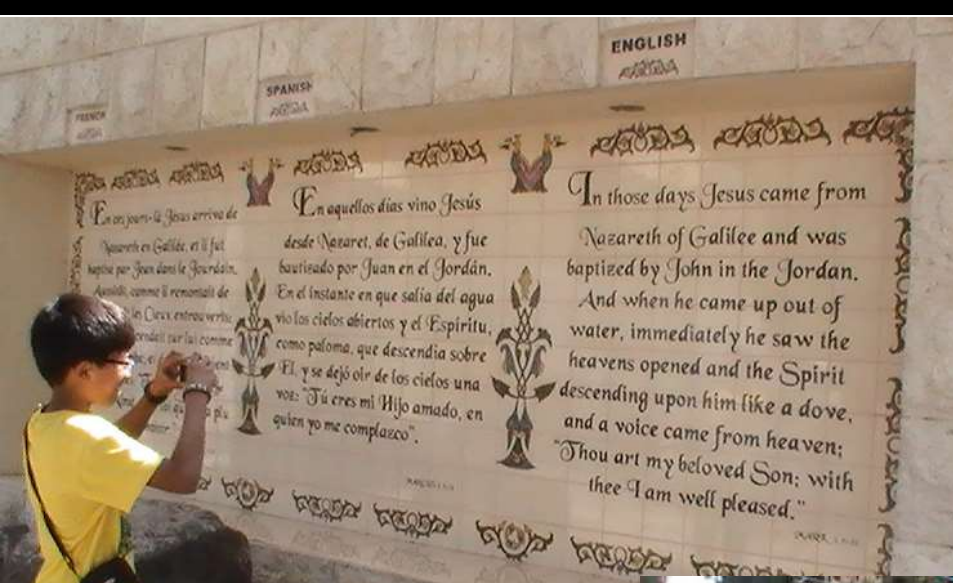 FRENCH
En ces jours-là Jésus arriva de
Nazareth en Galilée, et il fut
baptisé par Jean dans le Jourdain.
Aussitôt, comme il remontait de
les Cieux entrouverts
comme
SPANISH
En aquellos días vino Jesús
desde Nazaret, de Galilea, y fue
bautizado por Juan en el Jordán.
En el instante en que salía del agua
vio los cielos abiertos y el Espíritu,
como paloma, que descendia sobre
El, y se dejó oir de los cielos una
voz: "Tú eres mi Hijo amado, en
quien yo me complazco".
ENGLISH
In those days Jesus came from
Nazareth of Galilee and was
baptized by John in the Jordan.
And when he came up out of
water, immediately he saw the
heavens opened and the Spirit
descending upon him like a dove,
and a voice came from heaven;
"Thou art my beloved Son; with
thee I am well pleased."